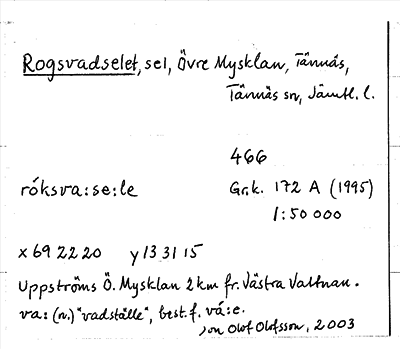 Rogsvadselet, sel, Övre Mysklan, Tännäs,
Tännäs sn, Jämtl. l.
466
róksva:se:le
Gr.k. 172 A (1995)
1:50 000
x 69 22 20 y 13 31 15
Uppströms Ö. Mysklan 2 km fr. Västra Valtnan.
va: (n.) "vadställe", best. f. vá:e.
Jon Olof Olofsson, 2003